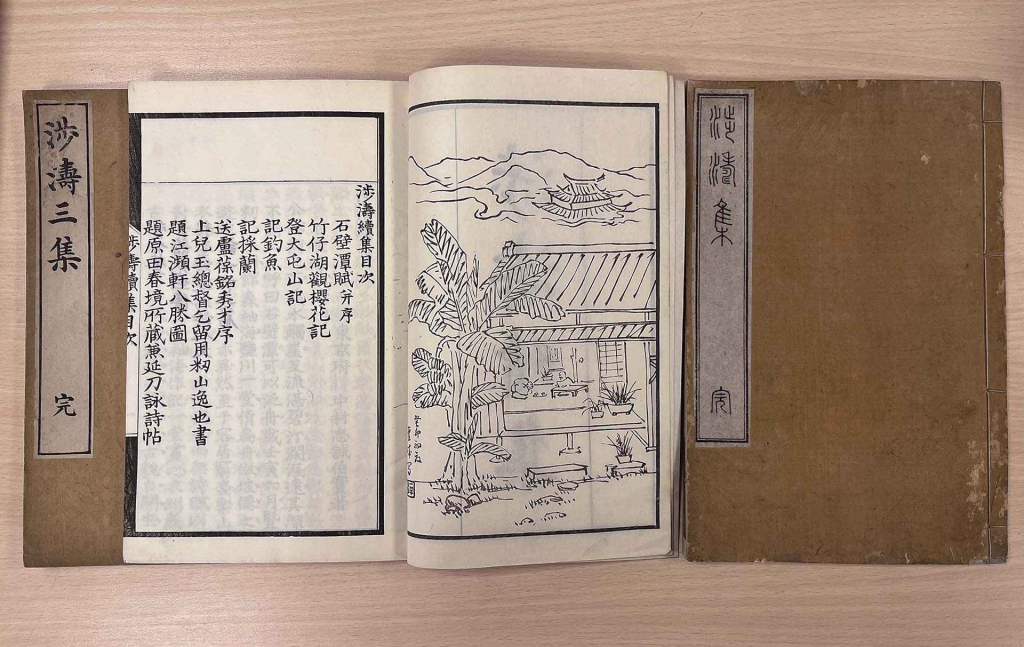 涉濤三集
完
涉濤續集目次
石壁潭賦并序
竹仔湖觀櫻花記
登大屯山記
記釣魚
記採蘭
送盧葆銘秀才序
上兒玉總督乞留用籾山逸也書
題江瀕軒八勝圖
題原田春境所藏兼延刀詠詩帖
涉濤續集目次
涉濤集
完